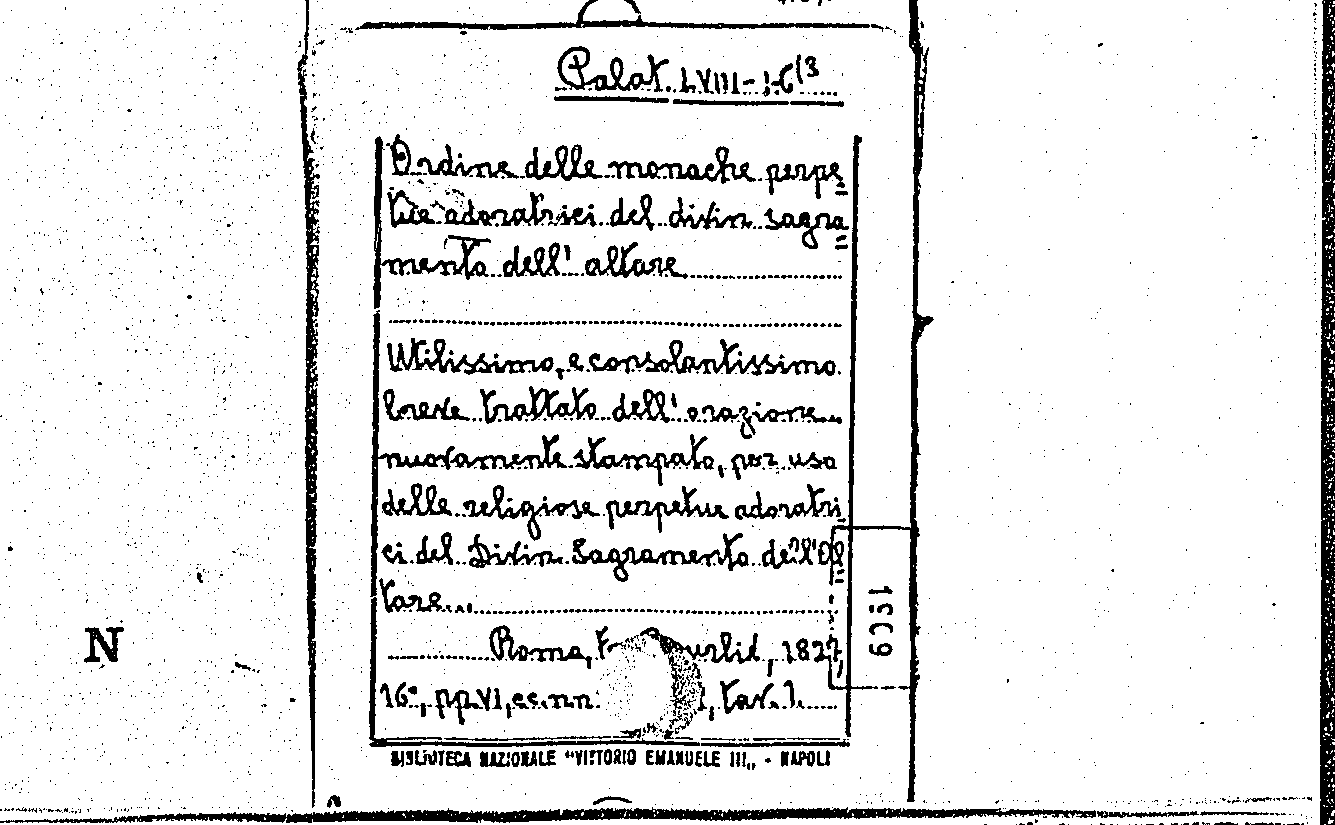 Palat. LVIII-I-C(3
Ordine delle monache perpe=
tue adoratrici del divin sagra=
mento dell' altare
Utilissimo, e consolantissimo
breve trattato dell' orazione...
nuovamente stampato, per uso
delle religiose perpetue adoratri
ci del Divin Sagramento dell'Al=
tare...
Roma, 1827,
16°, pp. VI, cc. nn. tav. 1.
BIBLIOTECA NAZIONALE "VITTORIO EMANUELE III„ - NAPOLI
N